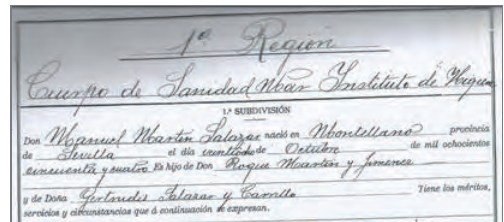 1ª Región
Cuerpo de Sanidad Mar Instituto de Higiene
1.ª SUBDIVISIÓN
Don Manuel Martin Salazar nació en Montellano provincia
de Sevilla el día veintidos de Octubre de mil ochocientos
cincuenta y cuatro Es hijo de Don Roque Martin y Jimenez
y de Doña Gertrudis Salazar y Carrillo Tiene los méritos,
servicios y circunstancias que á continuación se expresan.